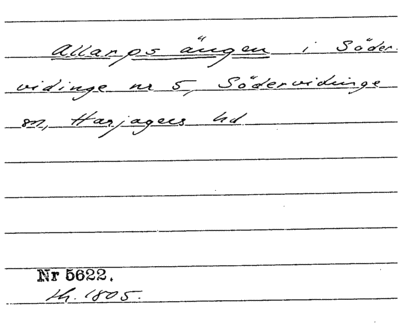 Allarps ängen i Söder-
vidinge nr 5, Södervidinge
sn, Harjagers hd
Nr 5622.
1805.